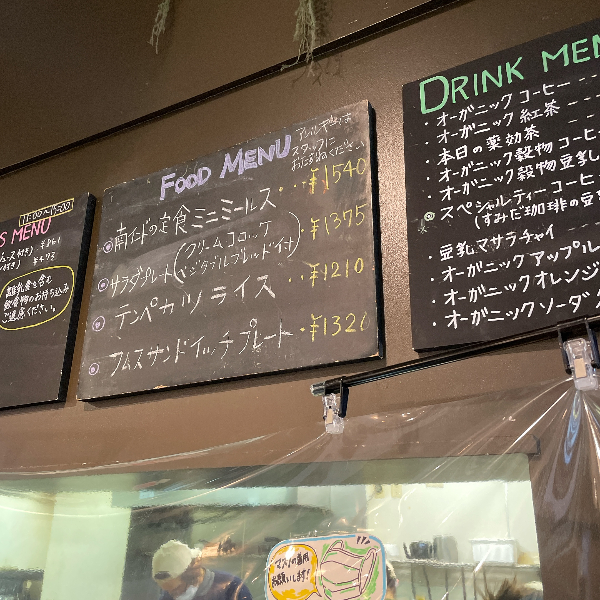 11:00~19:00
S MENU
離乳食を含む
飲食物のお持ち込み
ご遠慮ください。
FOOD MENU
アレルギー等は
スタッフに
おたずねください
南インドの定食 ミニミールス・・¥1540
サラダプレート(クリームコロッケ
ベジタブルプルドイート)・・¥1375
テンペカツライス・・¥1210
フムスサンドイッチプレート・・¥1320
DRINK MEN
・オーガニック コーヒー ---
・オーガニック 紅茶 ---
・本日の薬効茶 ---
・オーガニック穀物コーヒ
・オーガニック穀物豆乳
スペシャルティーコーヒ
(すみだ珈琲の豆
・豆乳マサラチャイ
・オーガニックアップル
・オーガニックオレンジ
・オーガニックソーダ
マスクの着用
お願いします!